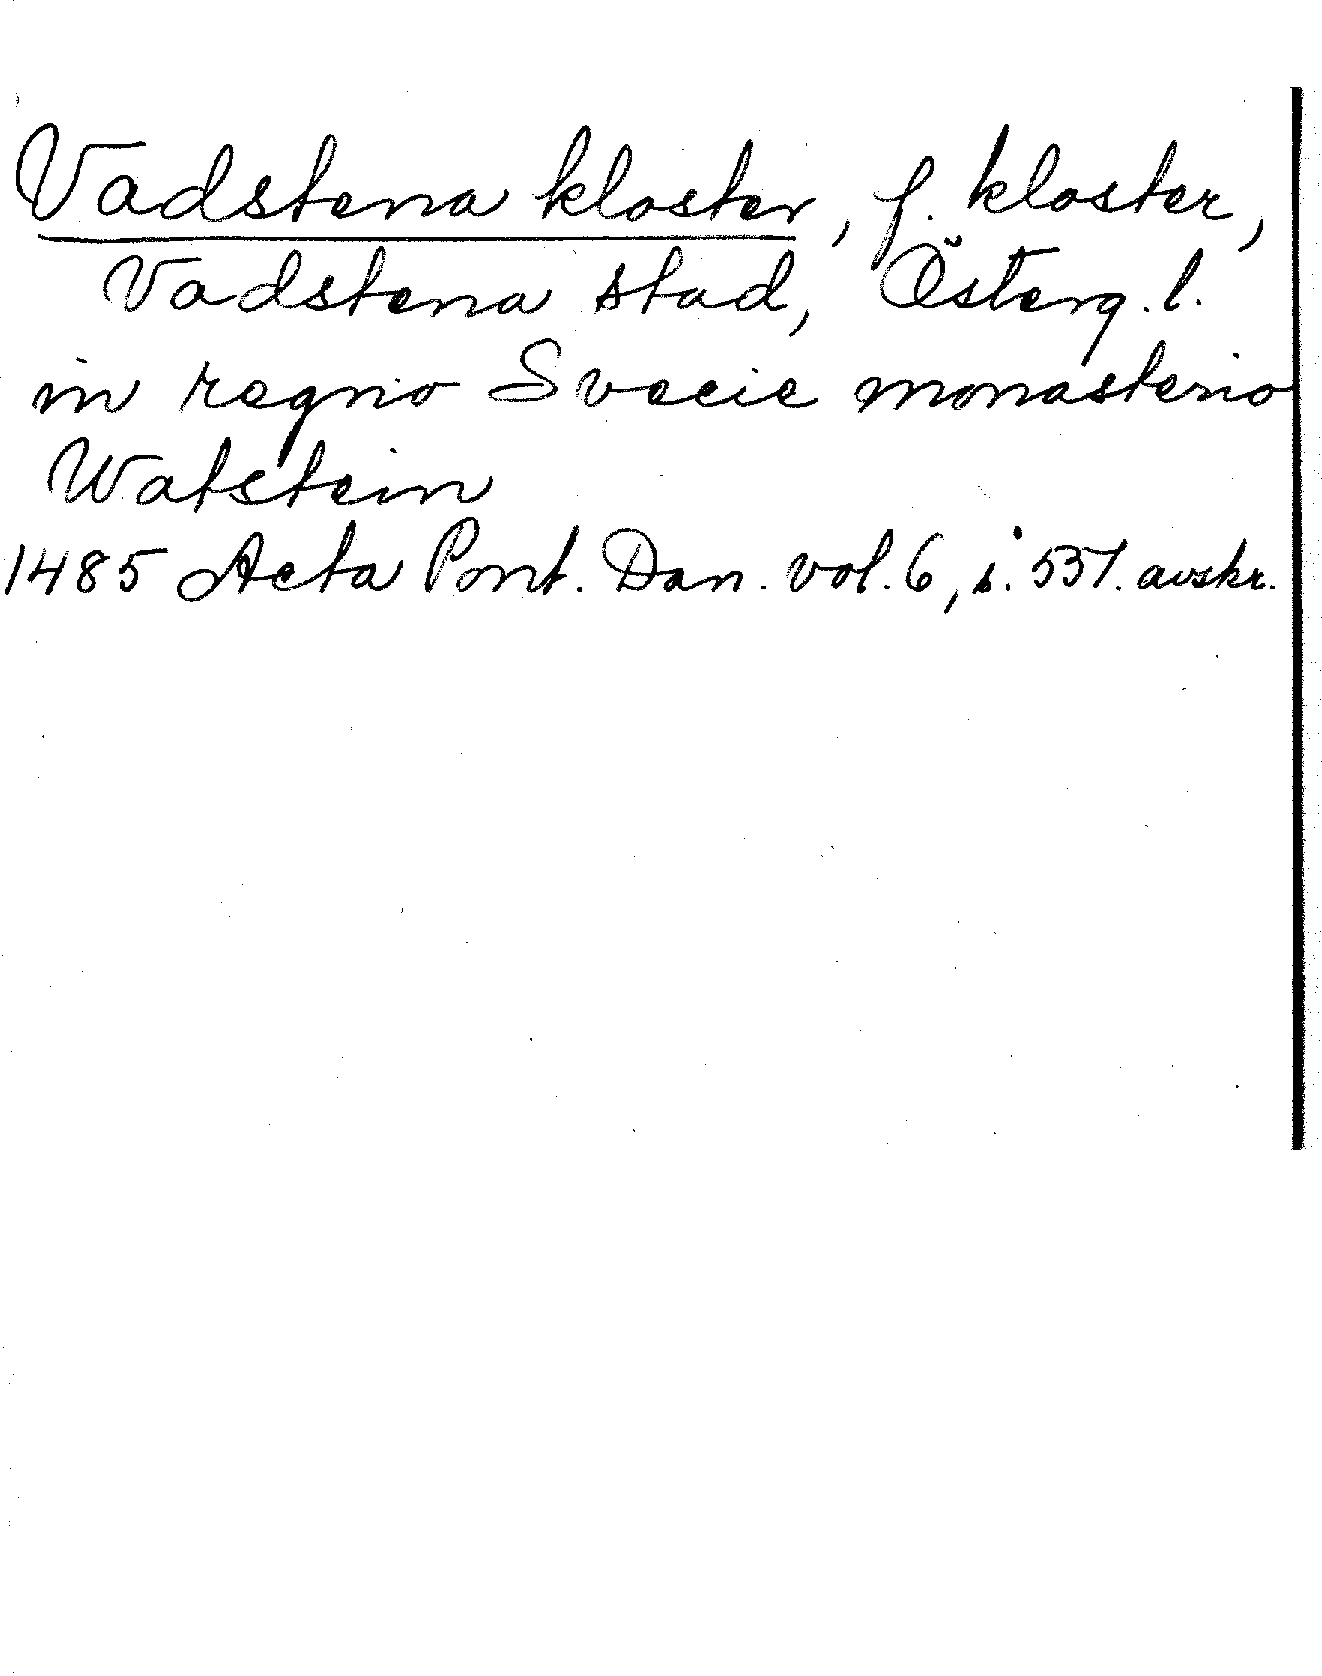 Vadstena kloster, f. kloster,
Vadstena stad, Österg. l.
in regno Svecie monasterio
Watstein
1485 Acta Pont. Dan. vol. 6, s. 537. avskr.